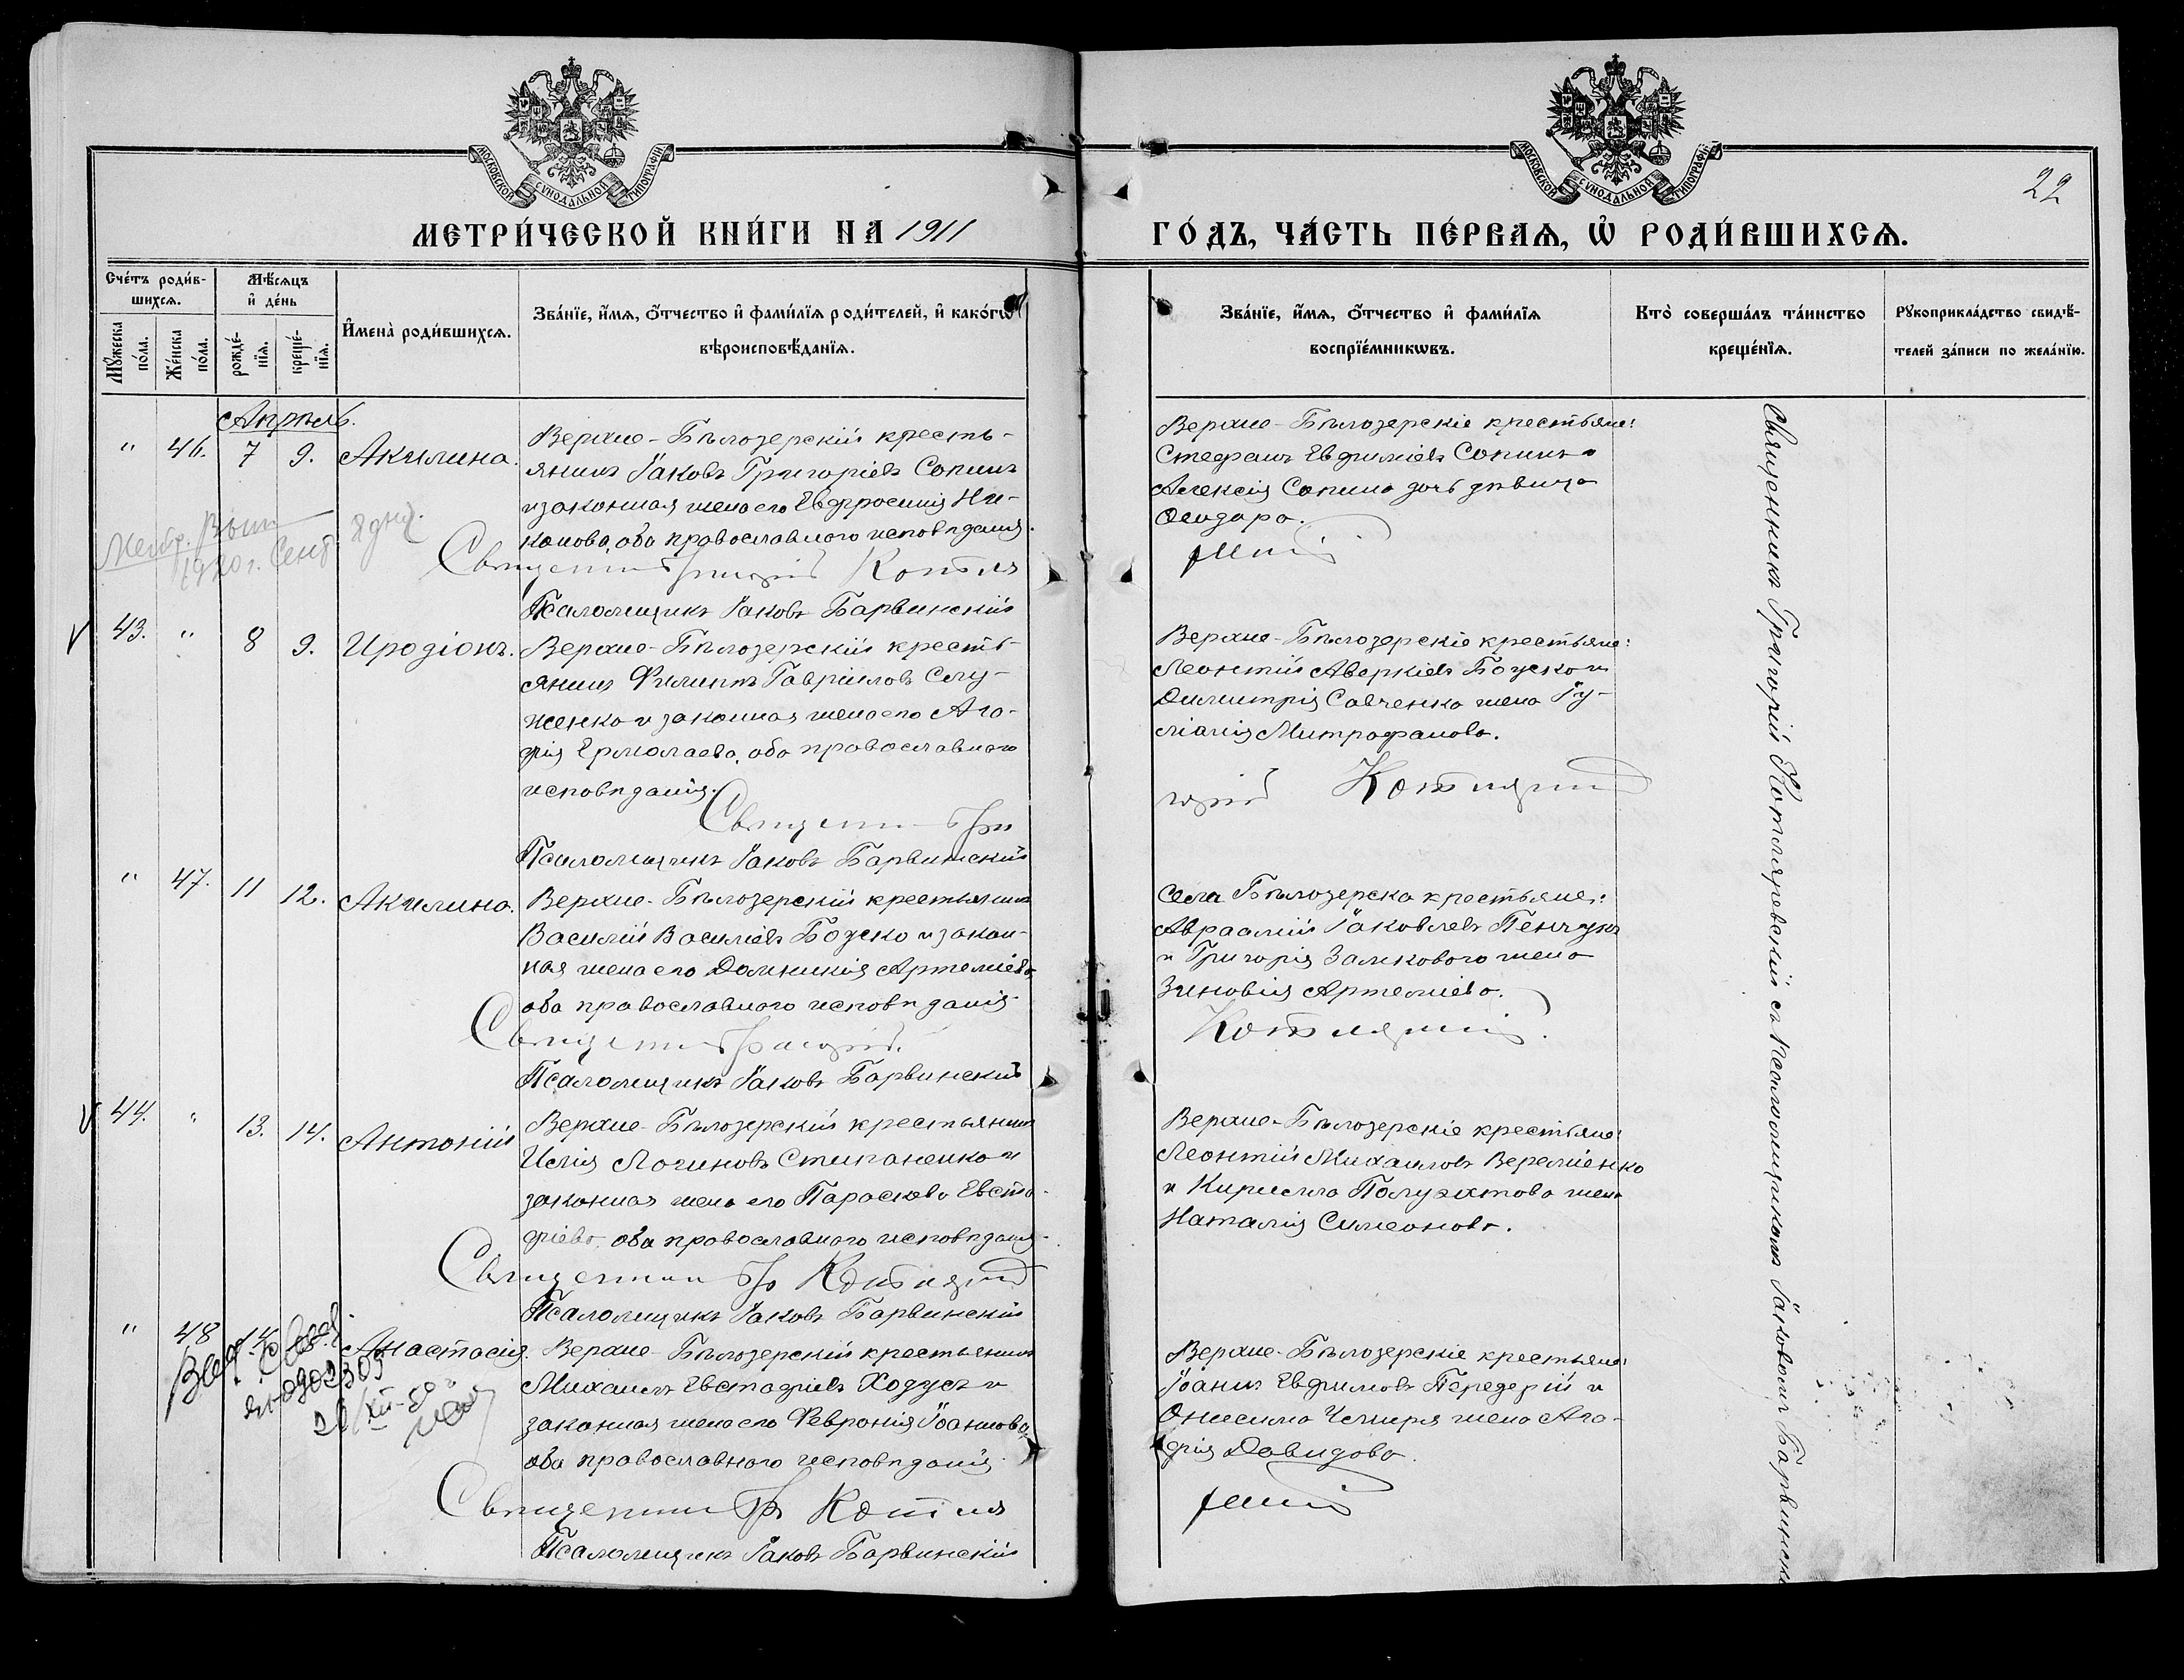 МОСКОВСКОЙ СУНОДАЛЬНОЙ ТИПОГРАФІИ
МЕТРИ́ЧЕСКОЙ КНИ́ГИ НА 1911
Сче́тъ роди́в-
шихсѧ.
Мꙋ́жеска по́ла.
Же́нска по́ла.
Мѣ́сѧцъ
и҆ де́нь
рожде́-
нїѧ.
креще́-
нїѧ.
И҆мена̀ роди́вшихсѧ.
Зва́нїе, и҆́мѧ, ѻ҆́тчество и҆ фами́лїѧ роди́телей, и҆ како́гѡ
вѣроисповѣ́данїѧ.
Апрѣль.
" 46. 7 9. Акилина.
Верхне-Бѣлозерскій кресть-
янинъ Іаковъ Григоріевъ Сопинъ
и законная жена его Евфросинія Ни-
конова, оба православнаго исповѣданія.
1920 г. Сент.
Священник Григорій Котля
Псаломщикъ Іаковъ Барвинскій
43. " 8 9. Иродіонъ.
Верхне-Бѣлозерскій кресть-
янинъ Филиппъ Гавріиловъ Слу-
женко и законная жена его Ага-
фія Ермолаева, оба православнаго
исповѣданія.
Священник Гри
Псаломщикъ Іаковъ Барвинскій
" 47. 11 12. Акилина.
Верхне-Бѣлозерскій крестьянинъ
Василій Василіевъ Боуско и закон-
ная жена его Домникія Артеміева,
оба православнаго исповѣданія
Священник Григорій
Псаломщикъ Іаковъ Барвинскій
44. " 13. 14. Антоній
Верхне-Бѣлозерскій крестьянинъ
Илія Логиновъ Стипаненко и
законная жена его Параскева Евста-
фіева, оба православнаго исповѣданія
Священник Гр Котляр
Псаломщикъ Іаковъ Барвинскій
" 48 14 Анастасія.
Верхне-Бѣлозерскій крестьянинъ
Михаилъ Евстафіевъ Ходусъ и
законная жена его Февронія Іоаннова,
оба православнаго исповѣданія
Священник Гр Котля
Псаломщикъ Іаковъ Барвинскій
МОСКОВСКОЙ СУНОДАЛЬНОЙ ТИПОГРАФІИ
22
ГО́ДЪ, ЧА́СТЬ ПЕ́РВАѦ, Ѡ҆ РОДИ́ВШИХСѦ.
Зва́нїе, и҆́мѧ, ѻ҆́тчество и҆ фами́лїѧ
воспрїе́мникѡвъ.
Кто̀ соверша́лъ та́инство
креще́нїѧ.
Рꙋкоприкла́дство свидѣ́-
телей за́писи по жела́нїю.
Верхне-Бѣлозерскіе крестьяне:
Стефанъ Евфиміевъ Сопинъ и
Алексія Сопина дочь дѣвица
Ѳеодора.
Верхне-Бѣлозерскіе крестьяне:
Леонтій Аверкіевъ Боуско и
Димитрія Савченка жена Іу-
ліанія Митрофанова.
горій Котляревский
Села Бѣлозерска крестьяне:
Авраамій Іаковлевъ Пенчукъ
и Григорія Замкового жена
Зиновія Артеміева.
Котляревский
Верхне-Бѣлозерскіе крестьяне:
Леонтій Михаиловъ Веремієнко
и Кирилла Полуяхтова жена
Наталія Симеонова.
Верхне-Бѣлозерскіе крестьяне:
Іоаннъ Евфимовъ Передерій и
Онисима Чемиря жена Ага-
фія Давидова.
Священникъ Григорій Котляревскій съ псаломщикомъ Іаковомъ Барвински